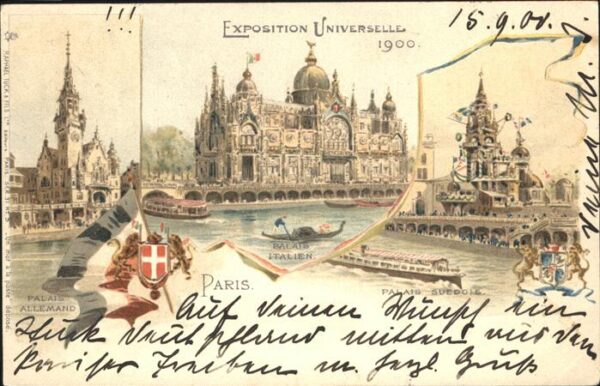 !!!
EXPOSITION UNIVERSELLE
1900.
15.9.00.
PALAIS
ITALIEN.
PALAIS
ALLEMAND
PARIS.
PALAIS SUEDOIS.
Auf deinen Wunsch ein
Stück Deutschland mitten aus dem
Pariser Treiben m. herzl. Gruß
RAPHAEL TUCK & FILS